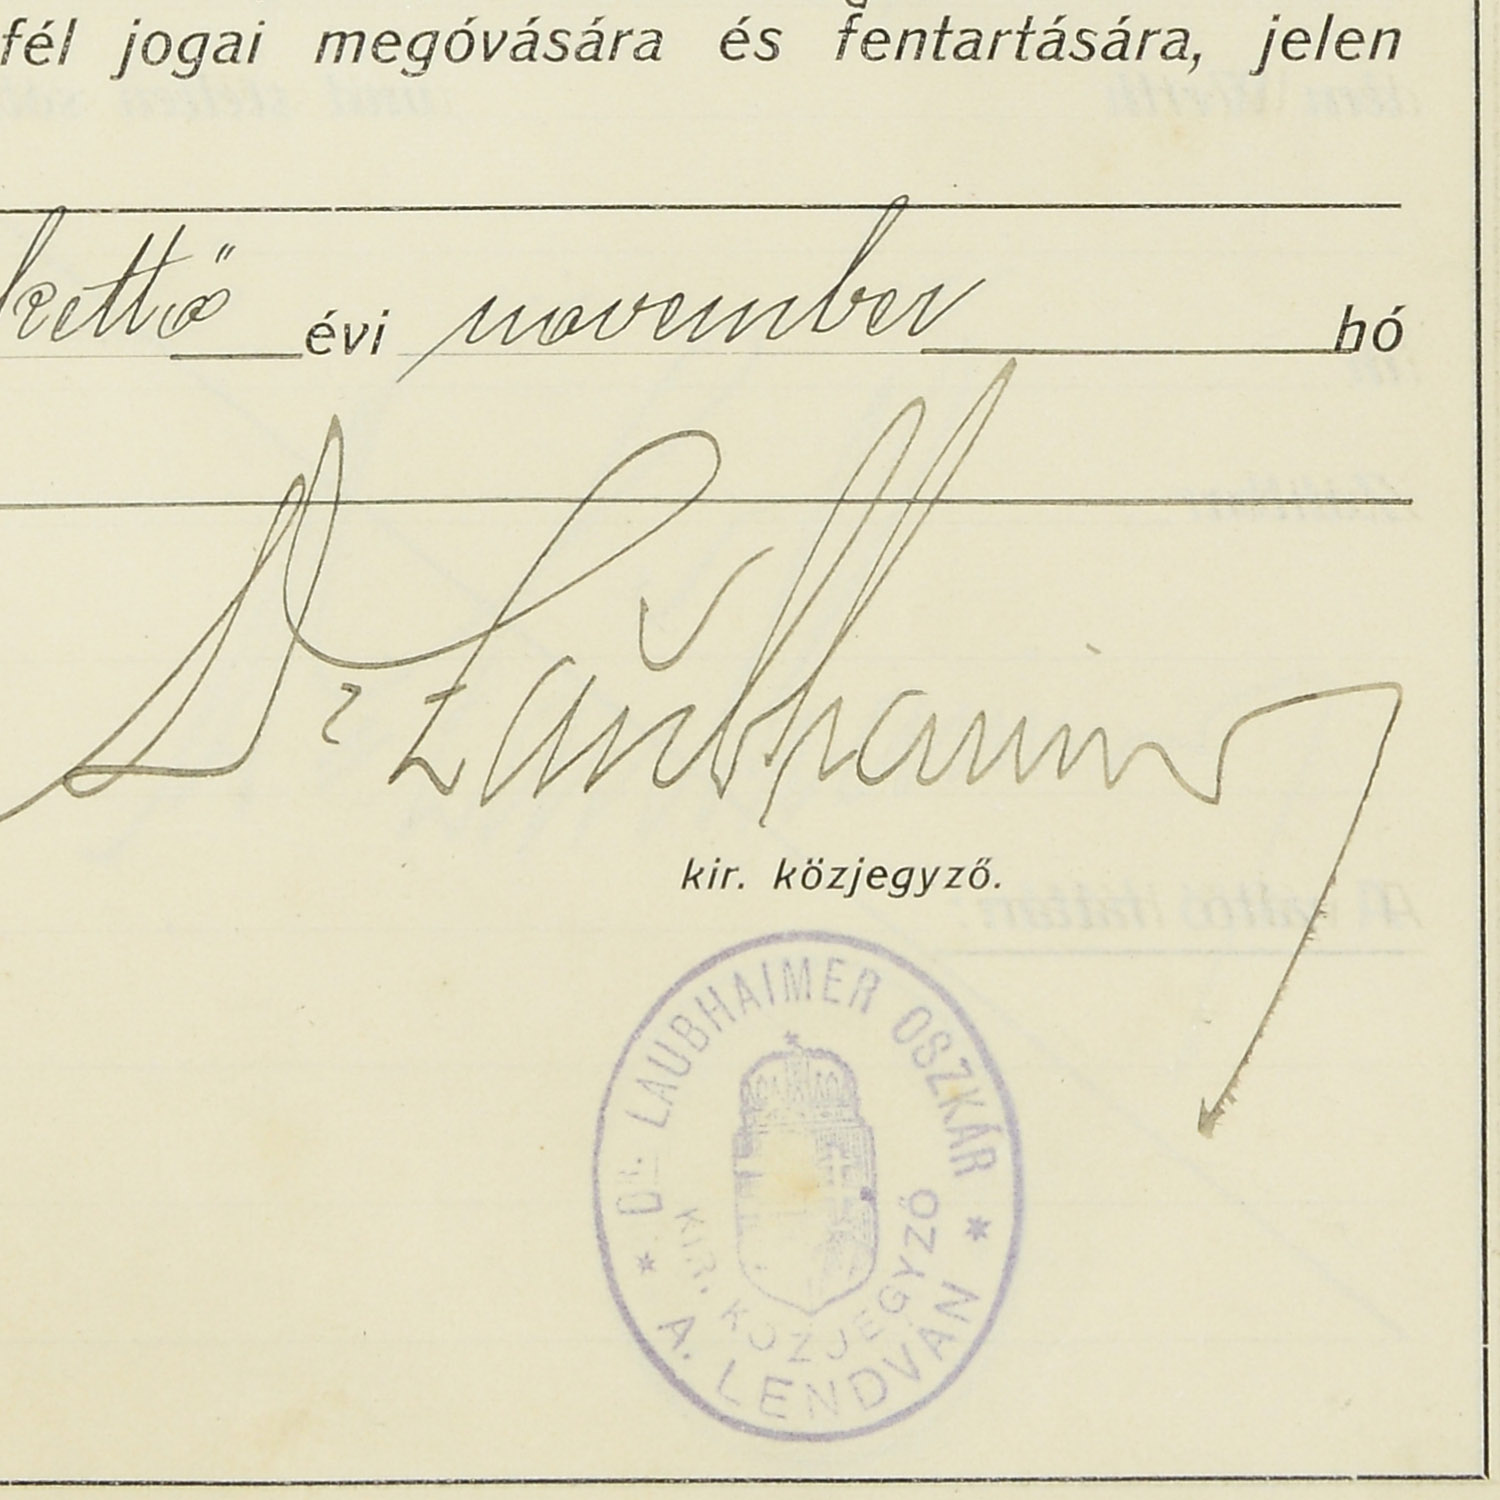 fél jogai megóvására és fentartására, jelen
kettő évi november hó
Dr Laubhaimer
kir. közjegyző.
* Dr. LAUBHAIMER OSZKÁR *
KIR. KÖZJEGYZŐ
A. LENDVÁN